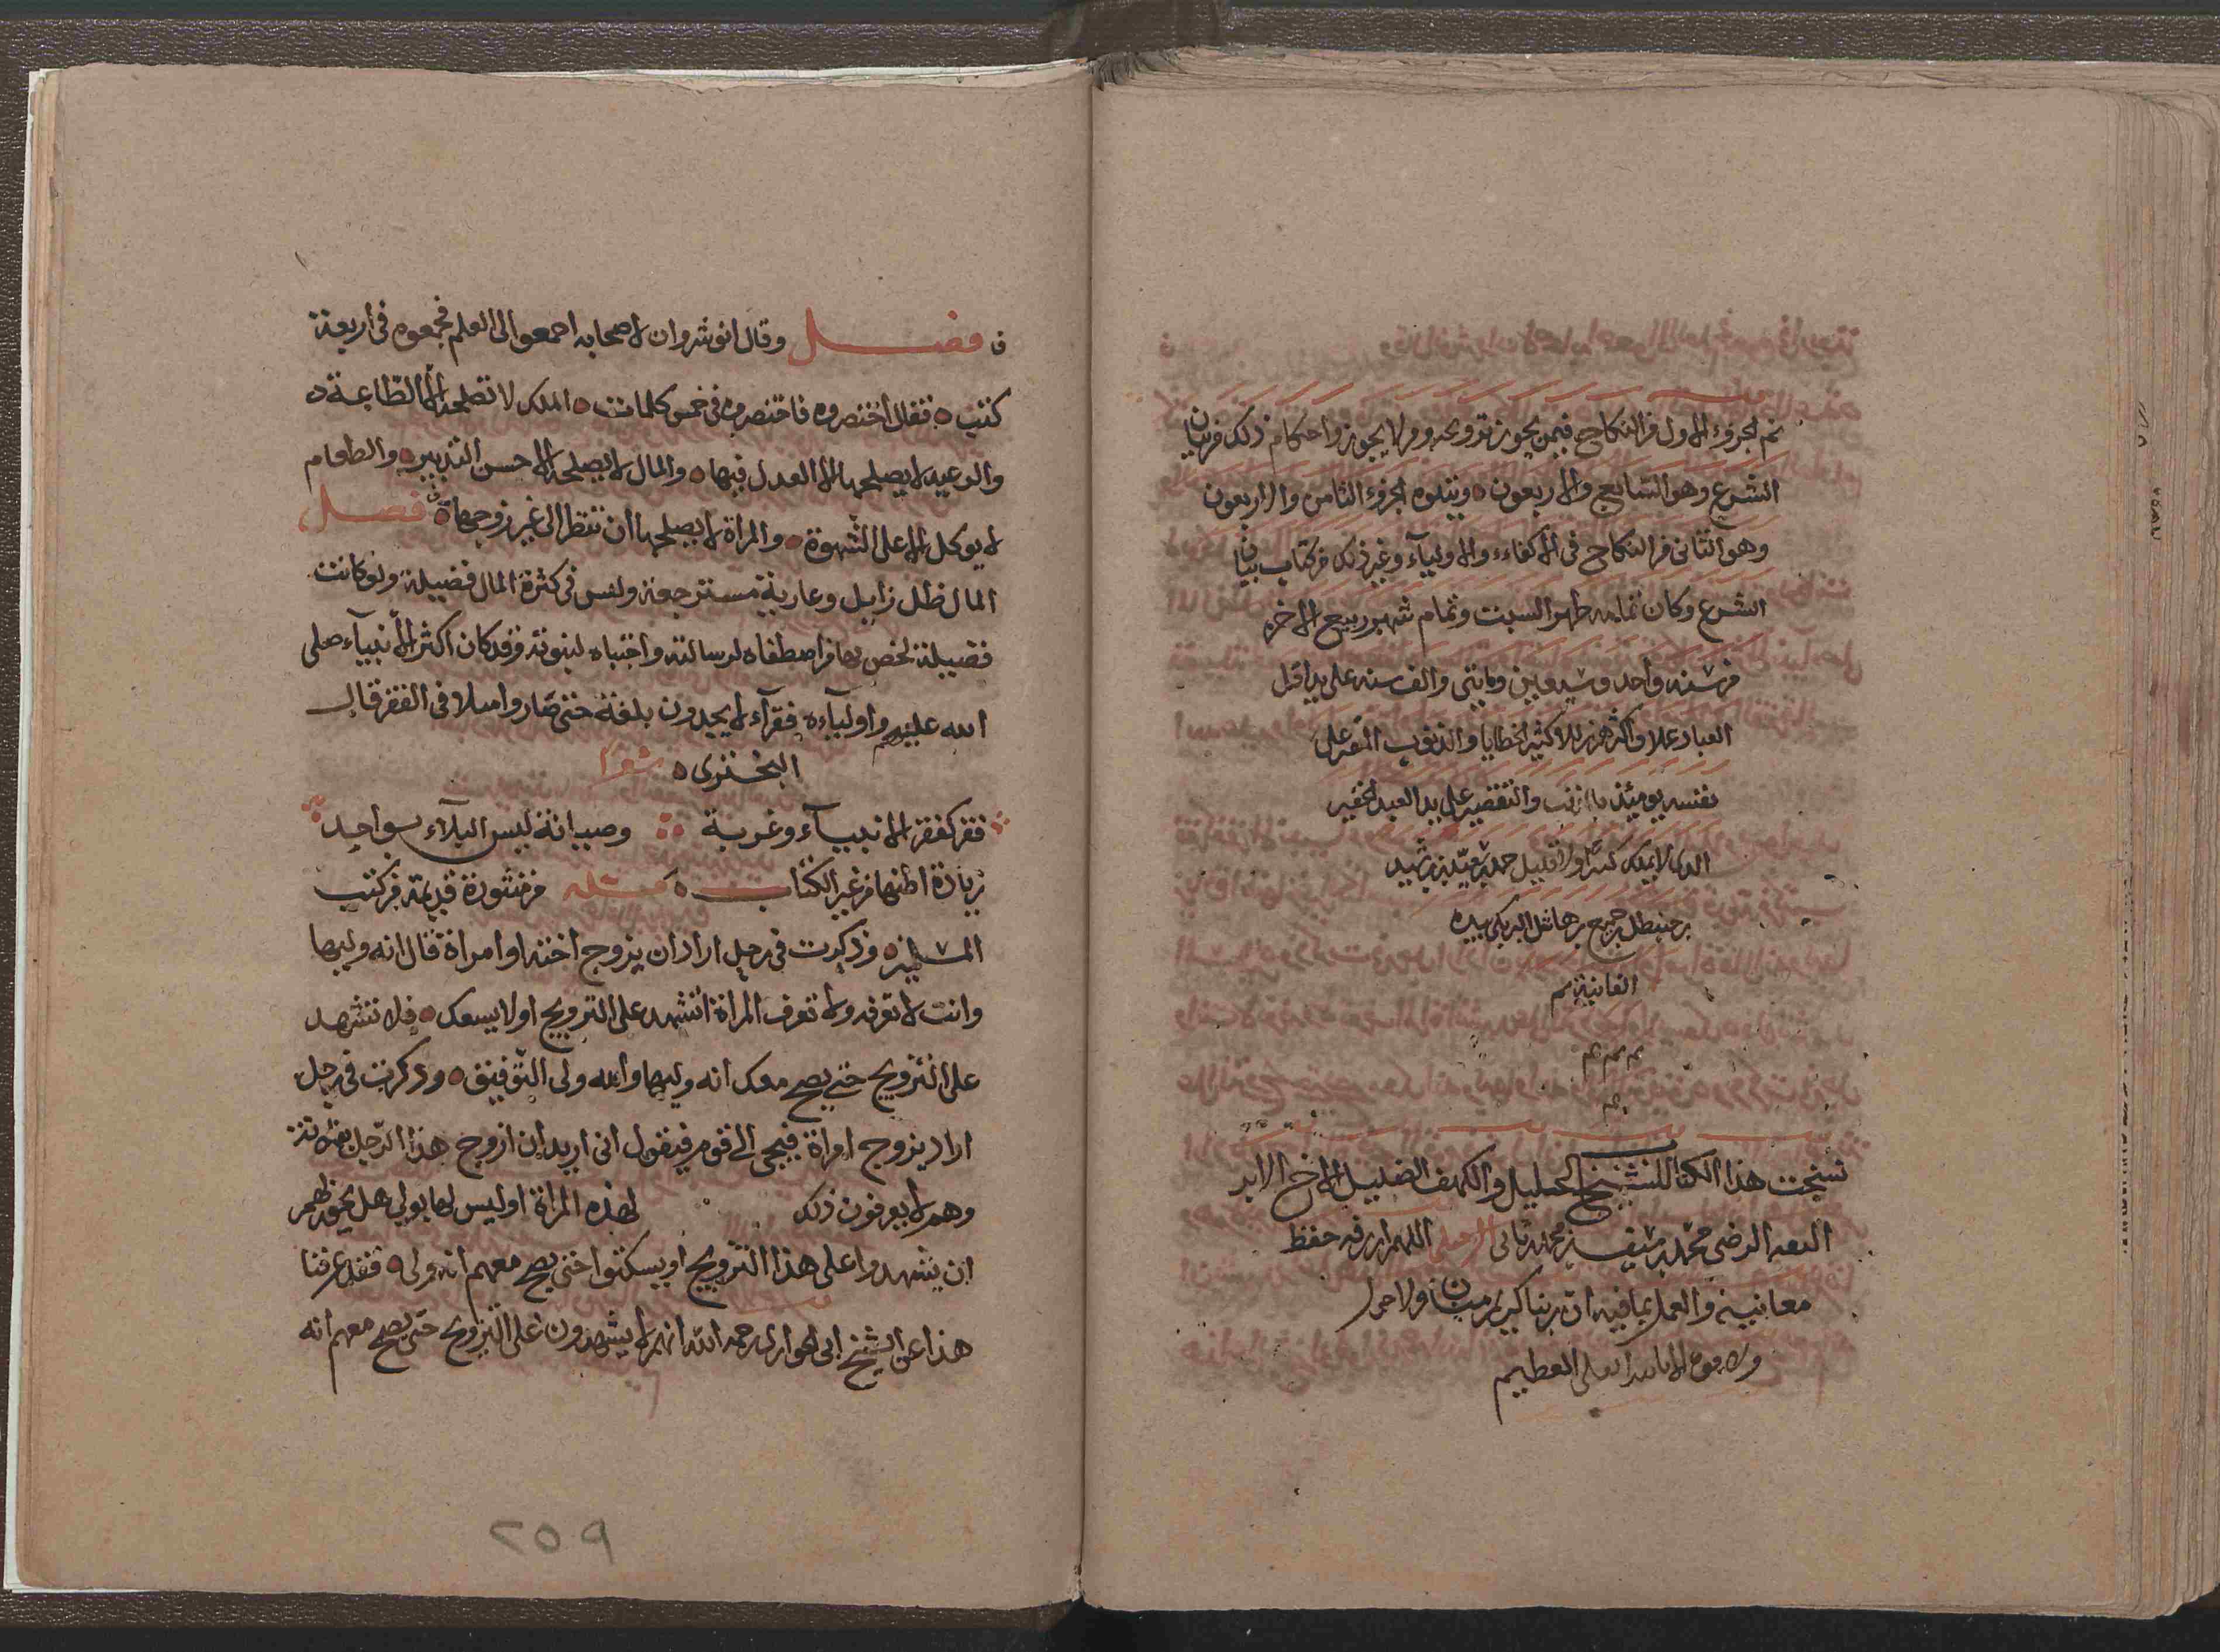 تم الجزء الاول من النكاح فيمن يجوز تزويجه ومن لا يجوز واحكام ذلك من بيان
الشرع وهو السابع والاربعون ه ويتلوه الجزء الثامن والاربعون
وهو الثاني من النكاح في الاكفاء والاولياء وغير ذلك من كتاب بيان
الشرع وكان تمامه ظهر السبت وتمام شهر ربيع الاخر
من سنه واحد وسبعين ومايتي والف سنه على يد اقل
العباد عملا واكثرهم زللا كثير الخطايا والذنوب المقر على
نفسه يومئذ بالذنب والتقصير على يد العبد الحقير
الذي لا يملك كثيرا ولا قليل حميد بن رشيد
بن جميع البريكي بيده
الفانية تم
تم تم تم
تم
نسخت هذا الكتاب للشيخ الجليل والكهف الضليل الاخ الابر
الثقه الرضي محمد بن سيف بن محمد بن اللهم ارزقه حفظ
معانيه والعمل بما فيه ان ربنا كريم منان ولا حول
ولا قوة الا بالله العلي العظيم
ف فصل وقال انوشروان لاصحابه اجمعوا الى العلم فجمعوه في اربعة
كتب ه فقال اختصروه فاختصروه في خمس كلمات ه الملك لا تصلحه الا الطاعة ه
والرعيه لا يصلحها الا العدل فيها ه والمال لا يصلحه الا حسن التدبير ه والطعام
لا يوكل الا على الشهوة ه والمراة لا يصلحها ان تنظر الى غير زوجها ه فصل
المال ظل زايل وعارية مسترجعة وليس في كثرة المال فضيلة ولو كانت
فضيلة لخص بها من اصطفاه لرسالته واجتباه لنبوته وقد كان اكثر الانبياء صلى
الله عليهم واولياءه فقرآء لا يجدون بلغة حتى صاروا مثلا في الفقر قال
البختري ه شعرا
فقر كفقر الانبيآء وغربة وصبابة ليس البلآء بواحد
زيادة اظنها من غير الكتاب ه مسئله من منثورة قديمة من كتب
المسلمين ه وذكرت في رجل اراد ان يزوج اخته او امراة قال انه وليها
وانت لا تعرفه ولا تعرف المراة اتشهد على التزويج او لا يسعك ه فلا تشهد
على التزويج حتى يصح معك انه وليها والله ولي التوفيق ه وذكرت في رجل
اراد يزوج امراة فيجي الى قوم فيقول اني اريد ان ازوج هذا الرجل
وهم لا يعرفون ذلك لهذه المراة او ليس لها بولي هل يجوز لهم
ان يشهدوا على هذا التزويج او يسكتوا حتى يصح معهم انه ولي ه فقد عرفنا
هذا عن الشيخ ابي الحواري رحمه الله انهم لا يشهدون على التزويج حتى يصح معهم انه
٢٥٩